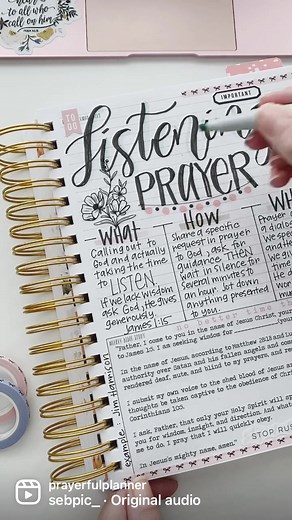 near
to all who
call on him
IMPORTANT
TO DO
Listening
PRAYER
WHAT
Calling out to
God and actually
taking the time
to LISTEN.
If we lack wisdom
ask God, He gives
generously.
James 1:5
HOW
Share a specific
request in prayer
to God, ask for
guidance, THEN
wait in silence for
several minutes to
an hour. Jot down
anything presented
to you.
WH
Prayer
a dialog
we spe
and He
If we a
speaki
we mi
He has
no better time th
"Father, I come to you in the name of Jesus Christ, your
to James 1:5. I am seeking wisdom for
In the name of Jesus, according to Matthew 28:18 and Lu
authority over Satan and his fallen angels and comma
rendered deaf, mute, and blind to my prayers, and re
I submit my own voice to the shed blood of Jesus a
thoughts be taken captive to the obedience of Chris
Corinthians 10:5.
I ask, Father, that only your Holy Spirit will sp
you for wisdom, insight, and direction, and what
me to do, I pray that I will quickly obey.
In Jesus's mighty name, amen."
example - Jim Harrison
STOP RUS
prayerfulplanner
sebpic_ · Original audio